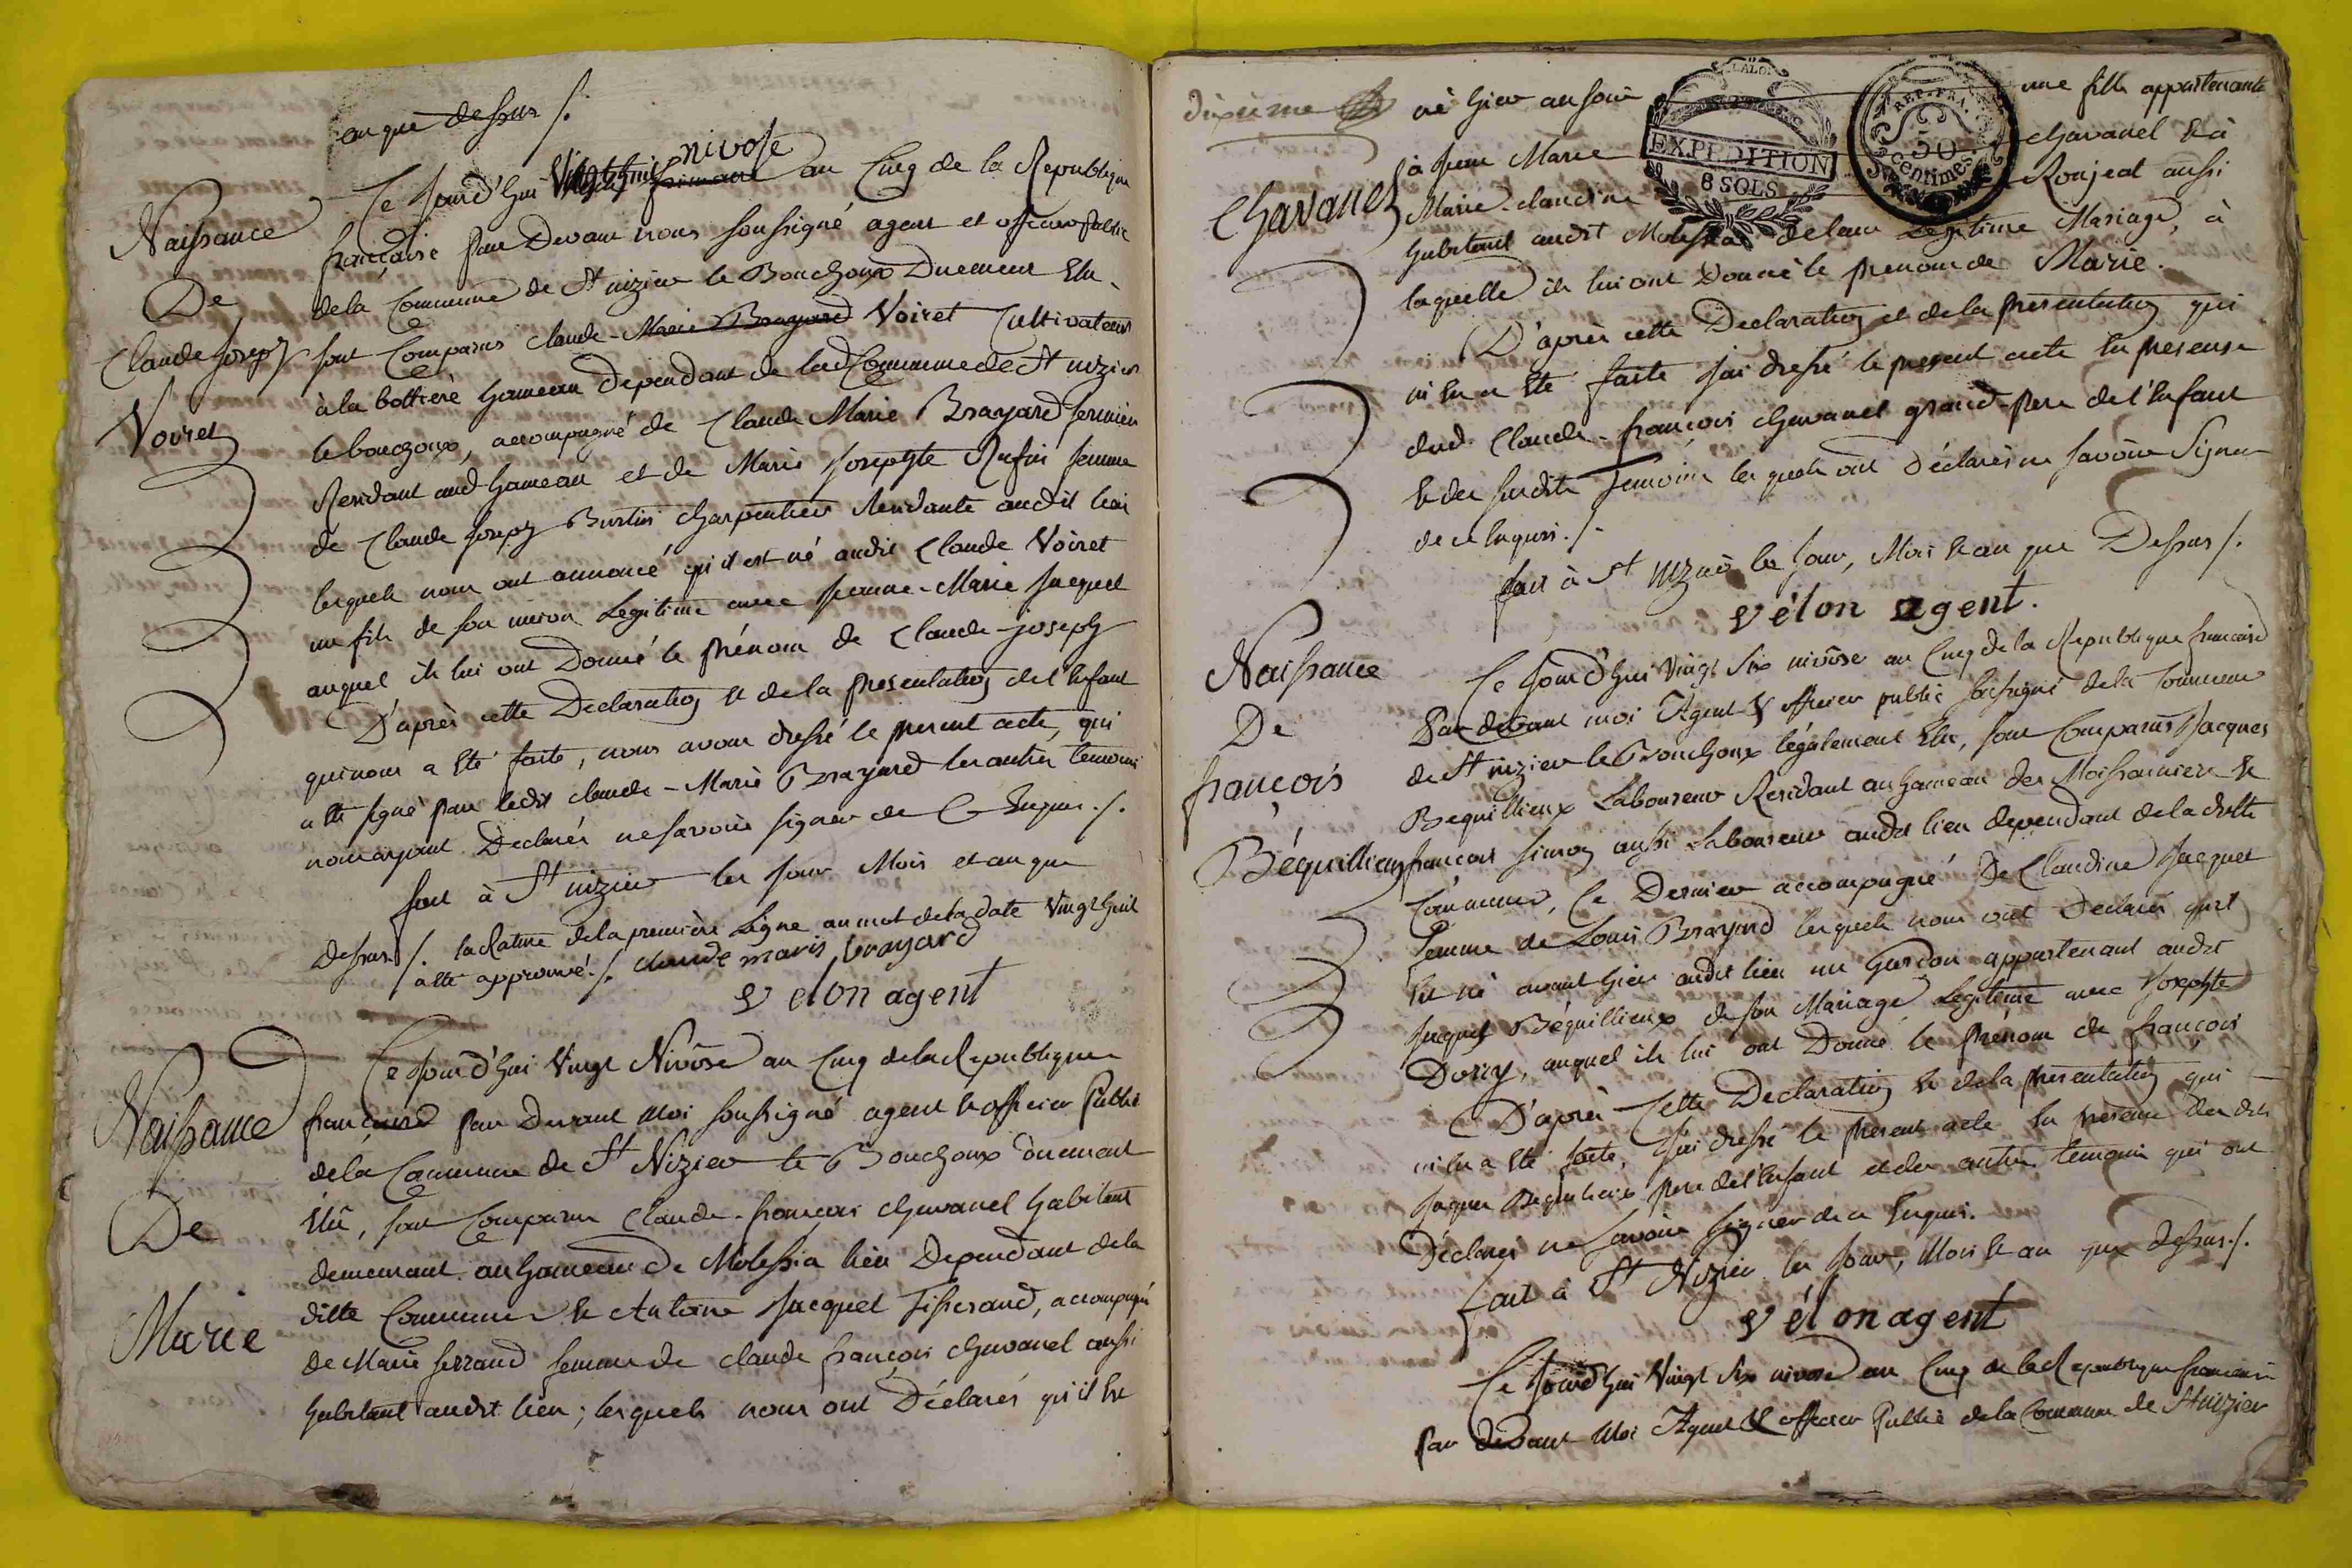 an que dessus ./.
Naissance
De
Claude Joseph
Voiret
Ce Jourd'hui Vingt huit nivose an Cinq de la Republique
francaise par Devant nous soussigné agent et officier public
de la Commune de St nizier le Bouchoux Duement Elu
sont Comparus claude-Marie Brayard Voiret Cultivateur
à la bottiere hameau dependant de lad Commune de St nizier
le bouchoux, accompagné de Claude Marie Brayard fermier
Residant aud hameau et de Marie Josephte Rufin femme
de Claude Joseph Burtin charpentier Residante audit lieu
lesquels nous ont annoncé qu'il est né audit Claude Voiret
un fils de son union Legitime avec jeanne-Marie Jacquet
auquel ils lui ont Donné le prénom de Claude-joseph
D'après cette Declaration & de la presentation de l'Enfant
qui nous a Eté faite, nous avons dressé le present acte, qui
a Eté signé par ledit claude-Marie Brayard les autres temoins
nous ayant Declarés ne savoir signer de ce Enquis ./.
fait à St nizier les jour Mois et an que
Dessus ./. la Rature de la première Ligne au mot de la date Vingt huit
a Eté approuvé ./. claude maris brayard
vélon agent
Naissance
De
Marie
Ce Jourd'hui Vingt Nivôse an Cinq de la Republique
francaise par Devant Moi soussigné agent & officier Public
de la Commune de St Nizier le Bouchoux duement
Elu, sont Comparus Claude-francois chavanel habitant
demeurant au hameau de Molessia lieu Dependant de la
ditte Commune & Antoine Jacquet Tisserand, accompagné
de Marie ferrand femme de claude françois chavanel aussi
habitant audit lieu; lesquels nous ont Déclarés qu'il Est
dixieme
Chavanel
né hier au soir une fille appartenante
EXPEDITION
8 SOLS
REP. FRA.
50
centimes
à Jean Marie chavanel & à
Marie-claudine Roujeat aussi
habitant audit Molessia de leur Légitime Mariage, à
laquelle ils lui ont Donné le prenom de Marie.
D'après cette Declaration et de la presentation qui
m'en a Eté faite j'ai dressé le present acte En presence
dud. Claude-françois chavanel grand-pere de l'Enfant
& des susdits Temoins lesquels ont Déclarés ne savoir Signer
de ce Enquis ./.
fait à St nizier les Jour, Mois & an que Dessus ./.
vélon agent.
Naissance
De
françois
Béquillieux
Ce Jourd'hui Vingt Six nivôse an Cinq de la Republique francaise
Par devant moi Agent & officier public soussigné de la Commune
de St nizier le Bouchoux légalement Elu, sont Comparus Jacques
Bequillieux Laboureur Residant au hameau des Moissonniere &
françois simon aussi Laboureur audit lieu dependant de la ditte
Commune, Ce Dernier accompagné De Claudine Jacquet
femme de Louis Brayard lesquels nous ont Declarés qu'il
Est né avant hier audit lieu un Garcon appartenant audit
Jacques Béquillieux de son Mariage Legitime avec Josephte
Dory, auquel ils lui ont Donné le prénom de françois
D'après Cette Declaration & de la presentation qui
m'en a Eté faite, j'ai dressé le present acte En presence dudit
Jaques Bequilieux pere de l'Enfant et des autres temoins qui ont
Déclarés ne savoir signer de ce Enquis.
fait à St Nizier les Jour, Mois & an que dessus ./.
vélon agent
Ce Jourd'hui Vingt Six nivose an Cinq de la Republique francaise
par devant Moi Agent & officier Public de la Commune de St nizier